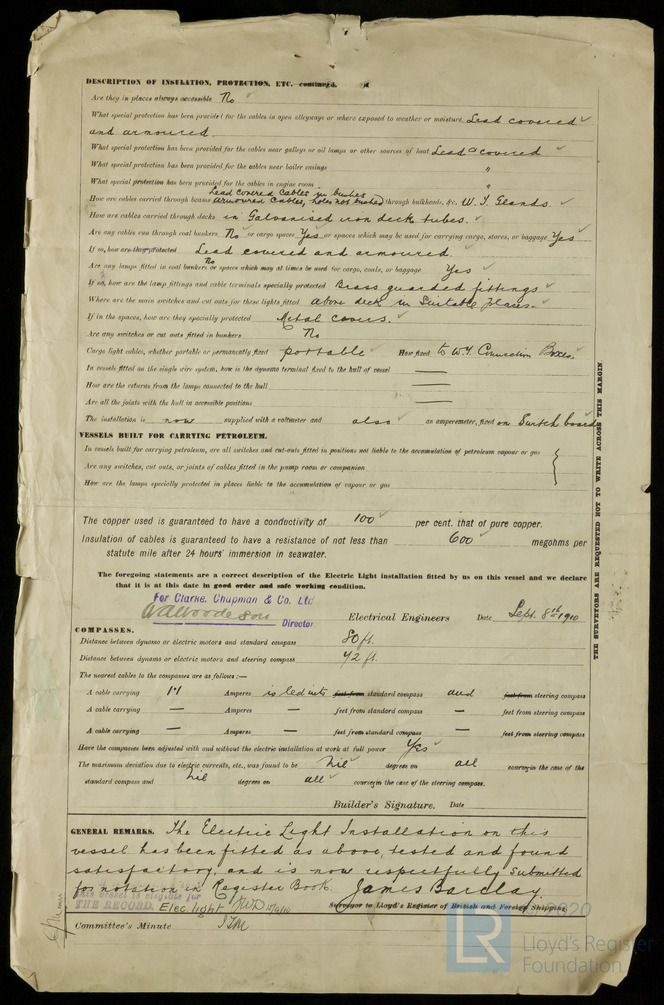 DESCRIPTION OF INSULATION, PROTECTION, ETC. continued.
Are they in places always accessible No
What special protection has been provided for the cables in open alleyways or where exposed to weather or moisture Lead covered
and armoured.
What special protection has been provided for the cables near galleys or oil lamps or other sources of heat Lead covered
What special protection has been provided for the cables near boiler casings "
What special protection has been provided for the cables in engine room "
Lead covered cables in bushes
How are cables carried through beams armoured cables, holes not bushed through bulkheads, &c. W.T. Glands.
How are cables carried through decks in Galvanised iron deck tubes.
Are any cables run through coal bunkers No or cargo spaces Yes or spaces which may be used for carrying cargo, stores, or baggage Yes
If so, how are they protected Lead covered and armoured
Are any lamps fitted in coal bunkers No or spaces which may at times be used for cargo, coals, or baggage Yes
If so, how are the lamp fittings and cable terminals specially protected Brass guarded fittings
Where are the main switches and cut outs for these lights fitted above deck in Suitable places.
If in the spaces, how are they specially protected Metal covers.
Are any switches or cut outs fitted in bunkers No
Cargo light cables, whether portable or permanently fixed portable How fixed to W.T. Connection Boxes.
In vessels fitted on the single wire system, how is the dynamo terminal fixed to the hull of vessel —
How are the returns from the lamps connected to the hull —
Are all the joints with the hull in accessible positions —
The installation is now supplied with a voltmeter and also an amperemeter, fixed on Switch board
VESSELS BUILT FOR CARRYING PETROLEUM.
In vessels built for carrying petroleum, are all switches and cut-outs fitted in positions not liable to the accumulation of petroleum vapour or gas
Are any switches, cut outs, or joints of cables fitted in the pump room or companion
How are the lamps specially protected in places liable to the accumulation of vapour or gas
The copper used is guaranteed to have a conductivity of 100 per cent. that of pure copper.
Insulation of cables is guaranteed to have a resistance of not less than 600 megohms per
statute mile after 24 hours' immersion in seawater.
The foregoing statements are a correct description of the Electric Light installation fitted by us on this vessel and we declare
that it is at this date in good order and safe working condition.
For Clarke, Chapman & Co. Ltd
Director
Electrical Engineers Date Sept. 8th 1910
COMPASSES.
Distance between dynamo or electric motors and standard compass 80 ft.
Distance between dynamo or electric motors and steering compass 72 ft.
The nearest cables to the compasses are as follows:—
A cable carrying 1.4 Amperes is led into feet from standard compass and feet from steering compass
A cable carrying — Amperes — feet from standard compass — feet from steering compass
A cable carrying — Amperes — feet from standard compass — feet from steering compass
Have the compasses been adjusted with and without the electric installation at work at full power Yes
The maximum deviation due to electric currents, etc., was found to be Nil degrees on all course in the case of the
standard compass and Nil degrees on all course in the case of the steering compass.
Builder's Signature. Date
GENERAL REMARKS. The Electric Light Installation on this
vessel has been fitted as above, tested and found
satisfactory, and is now respectfully Submitted
for notation in Register Book. James Barclay
This vessel is eligible for
THE RECORD. Elec. light
Surveyor to Lloyd's Register of British and Foreign Shipping.
Committee's Minute
THE SURVEYORS ARE REQUESTED NOT TO WRITE ACROSS THIS MARGIN.
LR
Lloyd's Register
Foundation